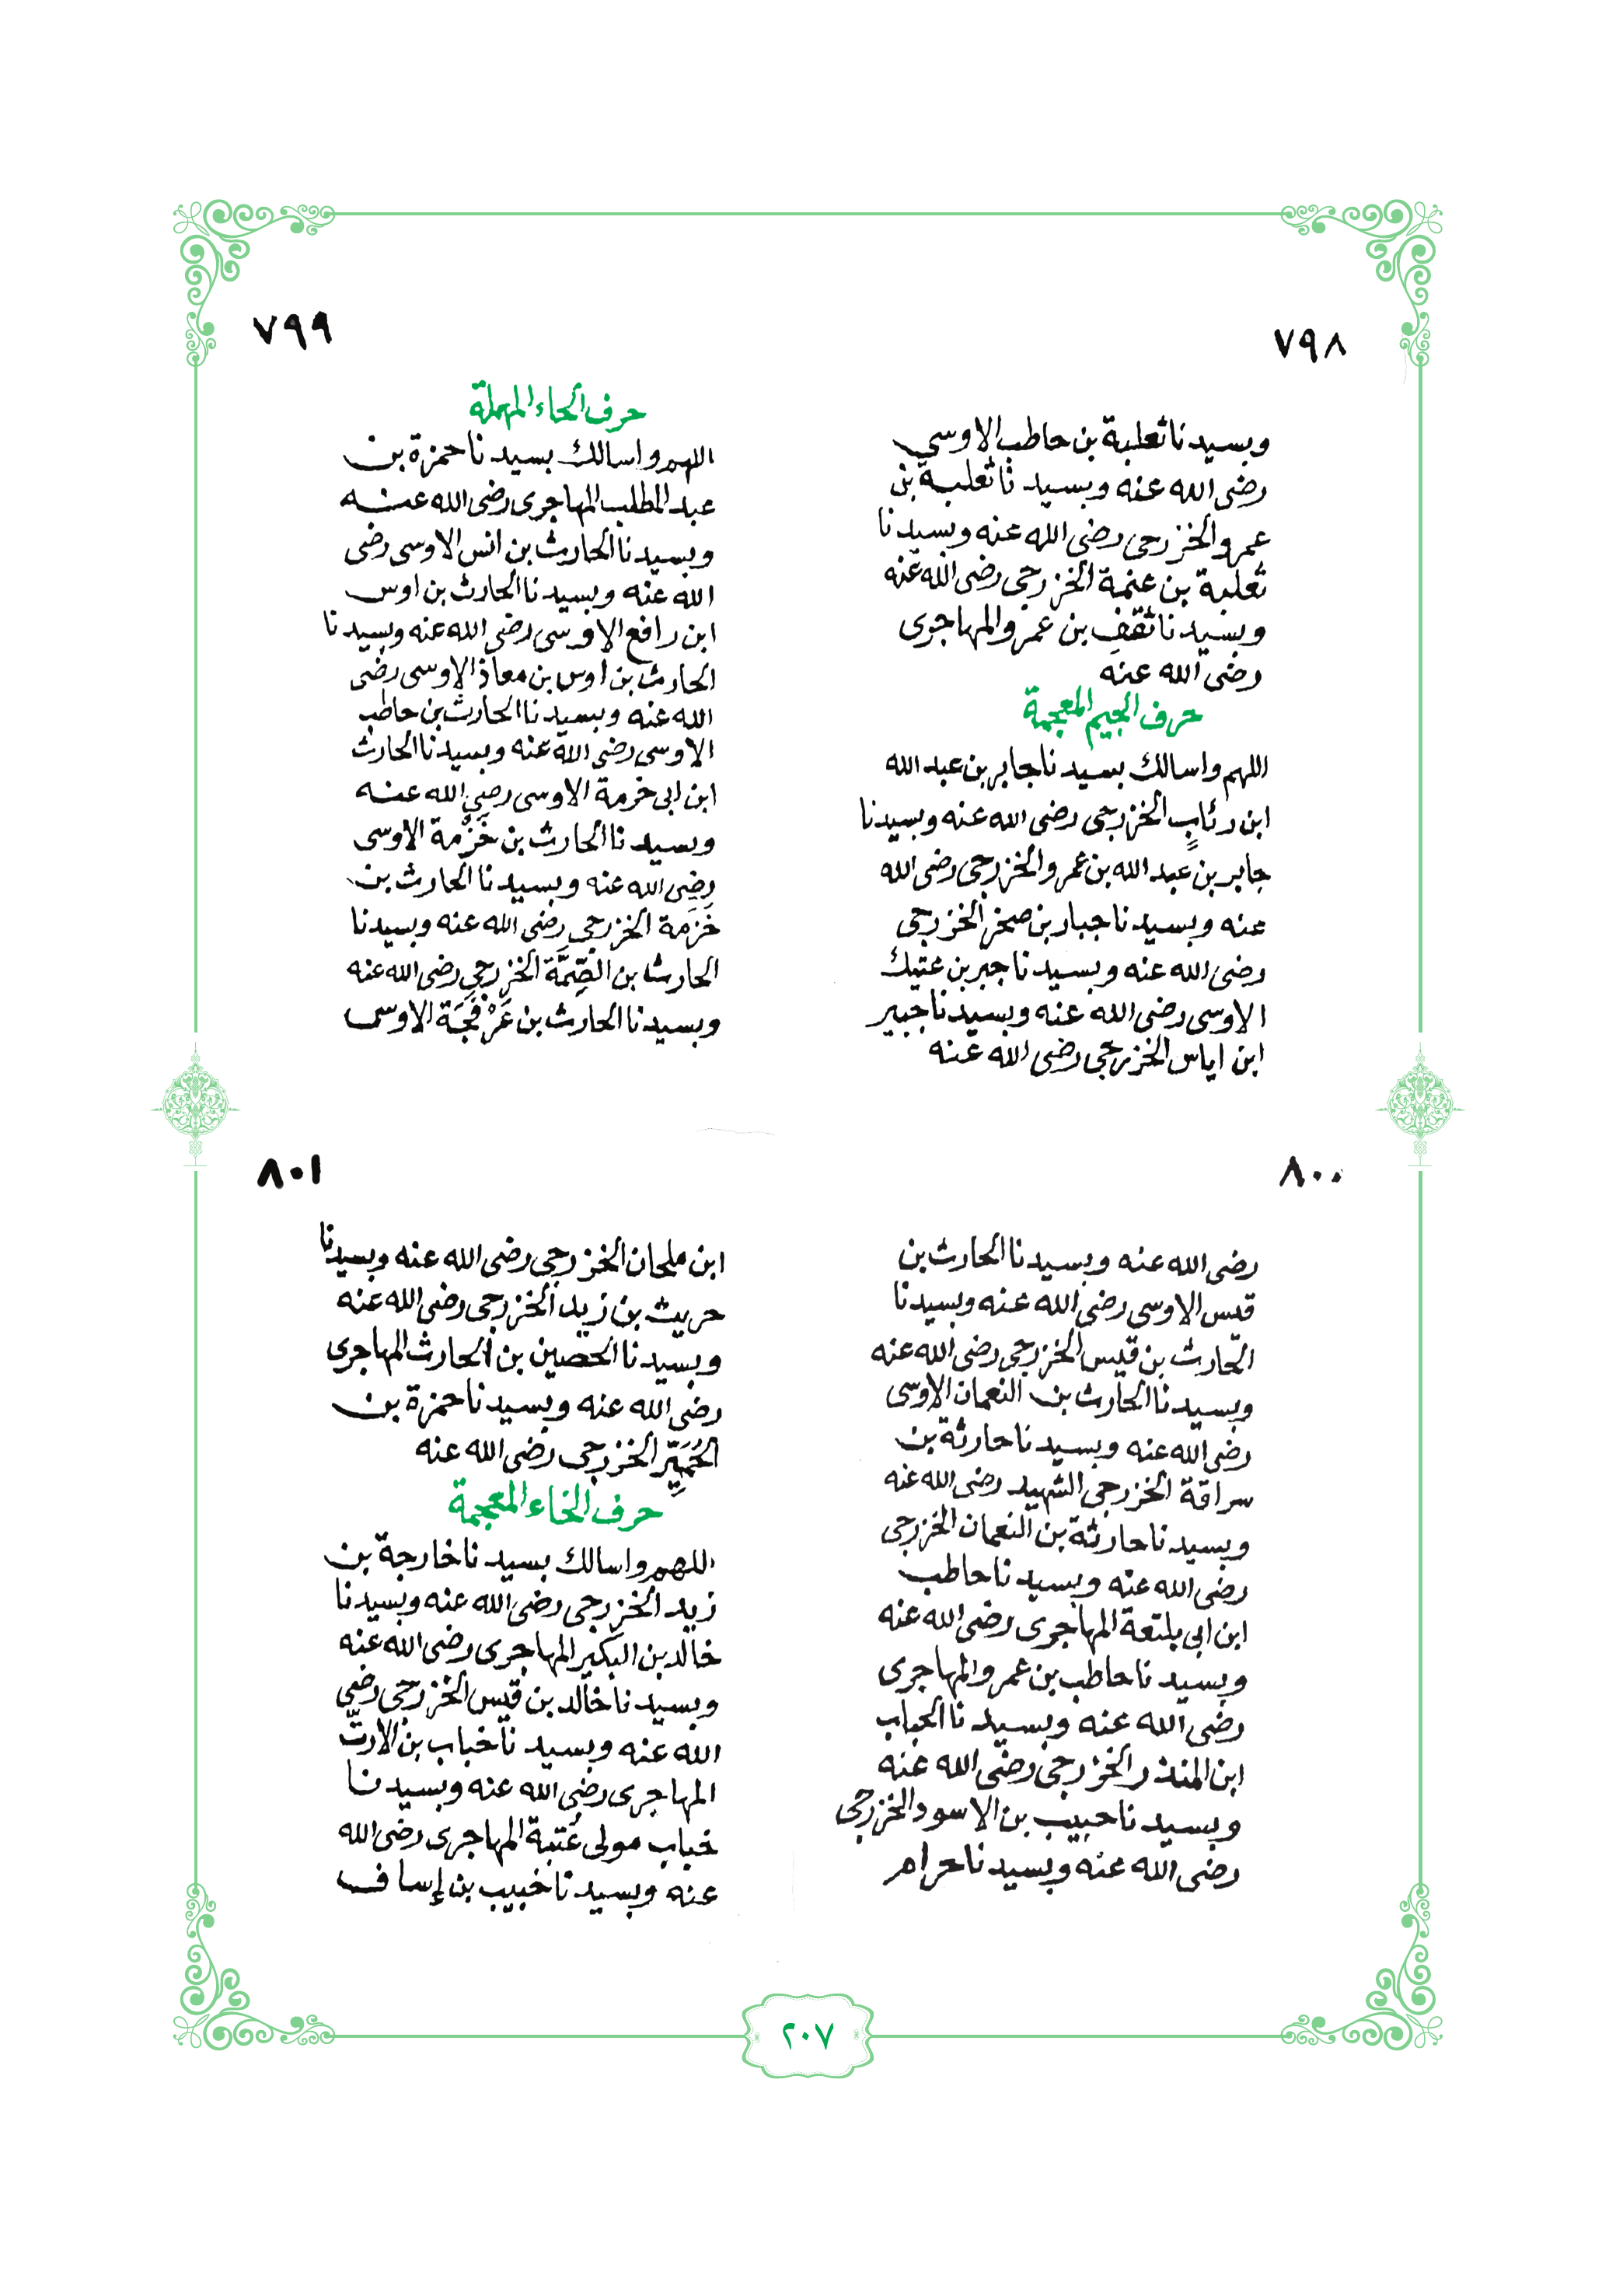 ٧٩٨
وبسيدنا ثعلبة بن حاطب الاوسي
رضى الله عنه وبسيدنا ثعلبة بن
عمرو الخزرجى رضى الله عنه وبسيدنا
ثعلبة بن عنمة الخزرجى رضى الله عنه
وبسيدنا ثقف بن عمرو المهاجرى
رضى الله عنه
حرف الجيم المعجمة
اللهم واسالك بسيدنا جابر بن عبد الله
ابن رئاب الخزرجى رضى الله عنه وبسيدنا
جابر بن عبد الله بن عمرو الخزرجى رضى الله
عنه وبسيدنا جبار بن صخر الخزرجى
رضى الله عنه وبسيدنا جبر بن عتيك
الاوسى رضى الله عنه وبسيدنا جبير
ابن اياس الخزرجى رضى الله عنه
٧٩٩
حرف الحاء المهملة
اللهم واسالك بسيدنا حمزة بن
عبد المطلب المهاجرى رضى الله عنه
وبسيدنا الحارث بن انس الاوسى رضى
الله عنه وبسيدنا الحارث بن اوس
ابن رافع الاوسى رضى الله عنه وبسيدنا
الحارث بن اوس بن معاذ الاوسى رضى
الله عنه وبسيدنا الحارث بن حاطب
الاوسى رضى الله عنه وبسيدنا الحارث
ابن ابى خرمة الاوسى رضى الله عنه
وبسيدنا الحارث بن خَزْمة الاوسى
رضى الله عنه وبسيدنا الحارث بن
خَزَمة الخزرجى رضى الله عنه وبسيدنا
الحارث بن الصِّمَّة الخزرجى رضى الله عنه
وبسيدنا الحارث بن عَرْفَجَة الاوسى
٨٠٠
رضى الله عنه وبسيدنا الحارث بن
قيس الاوسى رضى الله عنه وبسيدنا
الحارث بن قيس الخزرجى رضى الله عنه
وبسيدنا الحارث بن النعمان الاوسى
رضى الله عنه وبسيدنا حارثة بن
سراقة الخزرجى الشهيد رضى الله عنه
وبسيدنا حارثة بن النعمان الخزرجى
رضى الله عنه وبسيدنا حاطب
ابن ابى بلتعة المهاجرى رضى الله عنه
وبسيدنا حاطب بن عمرو المهاجرى
رضى الله عنه وبسيدنا الحباب
ابن المنذر الخزرجى رضى الله عنه
وبسيدنا حبيب بن الاسود الخزرجى
رضى الله عنه وبسيدنا حرام
٨٠١
ابن ملحان الخزرجى رضى الله عنه وبسيدنا
حريث بن زيد الخزرجى رضى الله عنه
وبسيدنا الحصين بن الحارث المهاجرى
رضى الله عنه وبسيدنا حمزة بن
الحُمَيِّر الخزرجى رضى الله عنه
حرف الخاء المعجمة
اللهم واسالك بسيدنا خارجة بن
زيد الخزرجى رضى الله عنه وبسيدنا
خالد بن البكير المهاجرى رضى الله عنه
وبسيدنا خالد بن قيس الخزرجى رضى
الله عنه وبسيدنا خباب بن الارتّ
المهاجرى رضى الله عنه وبسيدنا
خباب مولى عُتبة المهاجرى رضى الله
عنه وبسيدنا خبيب بن إساف
٢٠٧